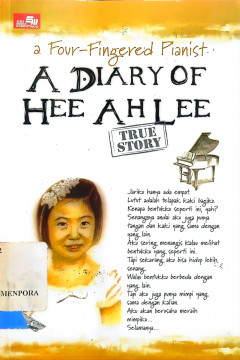 a Four-Fingered Pianist
A DIARY OF
HEE AH LEE
TRUE
STORY
Jariku hanya ada empat.
Lutut adalah telapak kaki bagiku.
Kenapa bentukku seperti ini, yah?
Senangnya andai aku juga punya
tangan dan kaki yang sama dengan
yang lain.
Aku sering menangis kalau melihat
bentukku yang seperti ini.
Tapi sekarang, aku bisa hidup lebih
senang.
Walau bentukku berbeda dengan
yang lain.
Tapi aku juga punya mimpi yang
sama dengan kalian.
Aku akan berusaha meraih
mimpiku...
Selamanya...
MENPORA